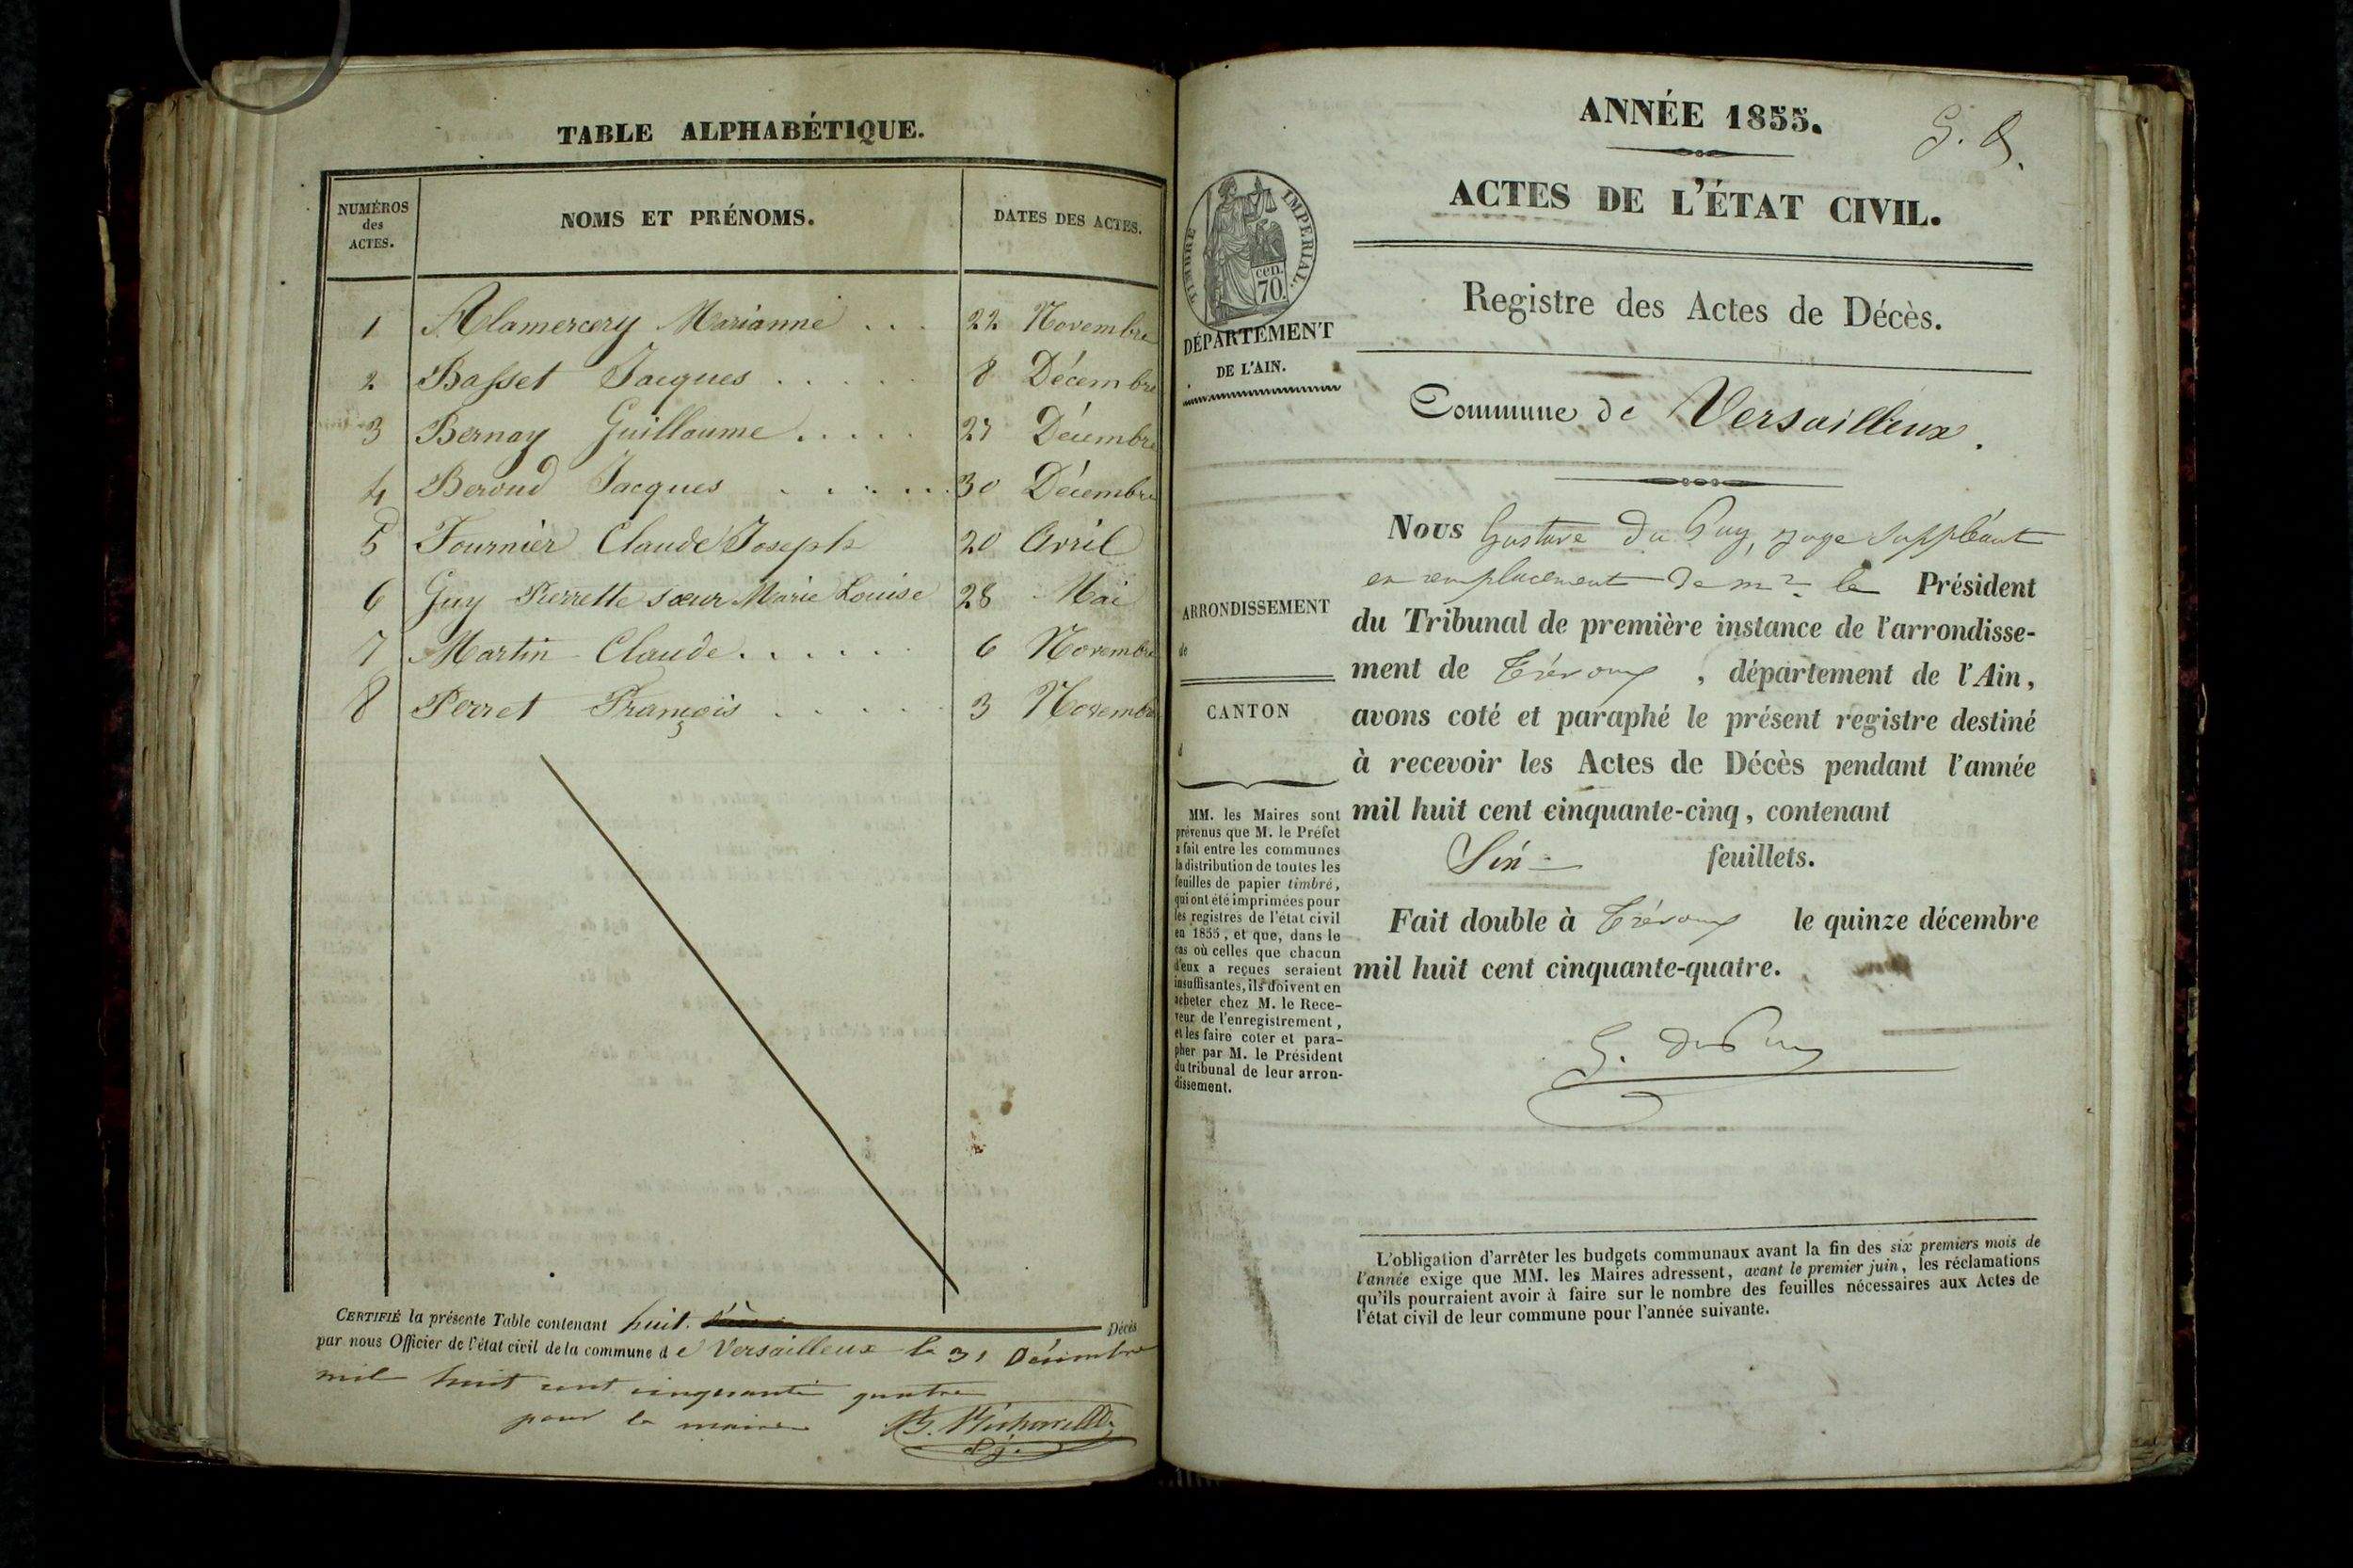 TABLE ALPHABÉTIQUE.
NUMÉROS
des
ACTES.
NOMS ET PRÉNOMS.
DATES DES ACTES.
1 Alamercery Marianne . . . 22 Novembre
2 Basset Jacques . . . . . 8 Décembre
3 Bernay Guillaume . . . . . 27 Décembre
4 Beroud Jacques . . . . . . 30 Décembre
5 Fournier Claude Joseph 20 Avril
6 Guy Pierrette sœur Marie Louise 28 Mai
7 Martin Claude . . . . . 6 Novembre
8 Perret François . . . . . 3 Novembre
CERTIFIÉ la présente Table contenant huit. Décès
par nous Officier de l'état civil de la commune de Versailleux le 31 Décembre
mil huit cent cinquante quatre
pour le maire
ANNÉE 1855.
ACTES DE L'ÉTAT CIVIL.
TIMBRE IMPERIAL.
cen.
70.
DÉPARTEMENT
DE L'AIN.
Registre des Actes de Décès.
Commune de Versailleux.
ARRONDISSEMENT
de
CANTON
d
MM. les Maires sont
prévenus que M. le Préfet
a fait entre les communes
la distribution de toutes les
feuilles de papier timbré,
qui ont été imprimées pour
les registres de l'état civil
en 1855, et que, dans le
cas où celles que chacun
d'eux a reçues seraient
insuffisantes, ils doivent en
acheter chez M. le Rece-
veur de l'enregistrement,
et les faire coter et para-
pher par M. le Président
du tribunal de leur arron-
dissement.
Nous Gustave Du Puy, juge suppléant
en remplacement de mr. le Président
du Tribunal de première instance de l'arrondisse-
ment de Trévoux, département de l'Ain,
avons coté et paraphé le présent registre destiné
à recevoir les Actes de Décès pendant l'année
mil huit cent cinquante-cinq, contenant
Six feuillets.
Fait double à Trévoux le quinze décembre
mil huit cent cinquante-quatre.
G. Du Puy
L'obligation d'arrêter les budgets communaux avant la fin des six premiers mois de
l'année exige que MM. les Maires adressent, avant le premier juin, les réclamations
qu'ils pourraient avoir à faire sur le nombre des feuilles nécessaires aux Actes de
l'état civil de leur commune pour l'année suivante.